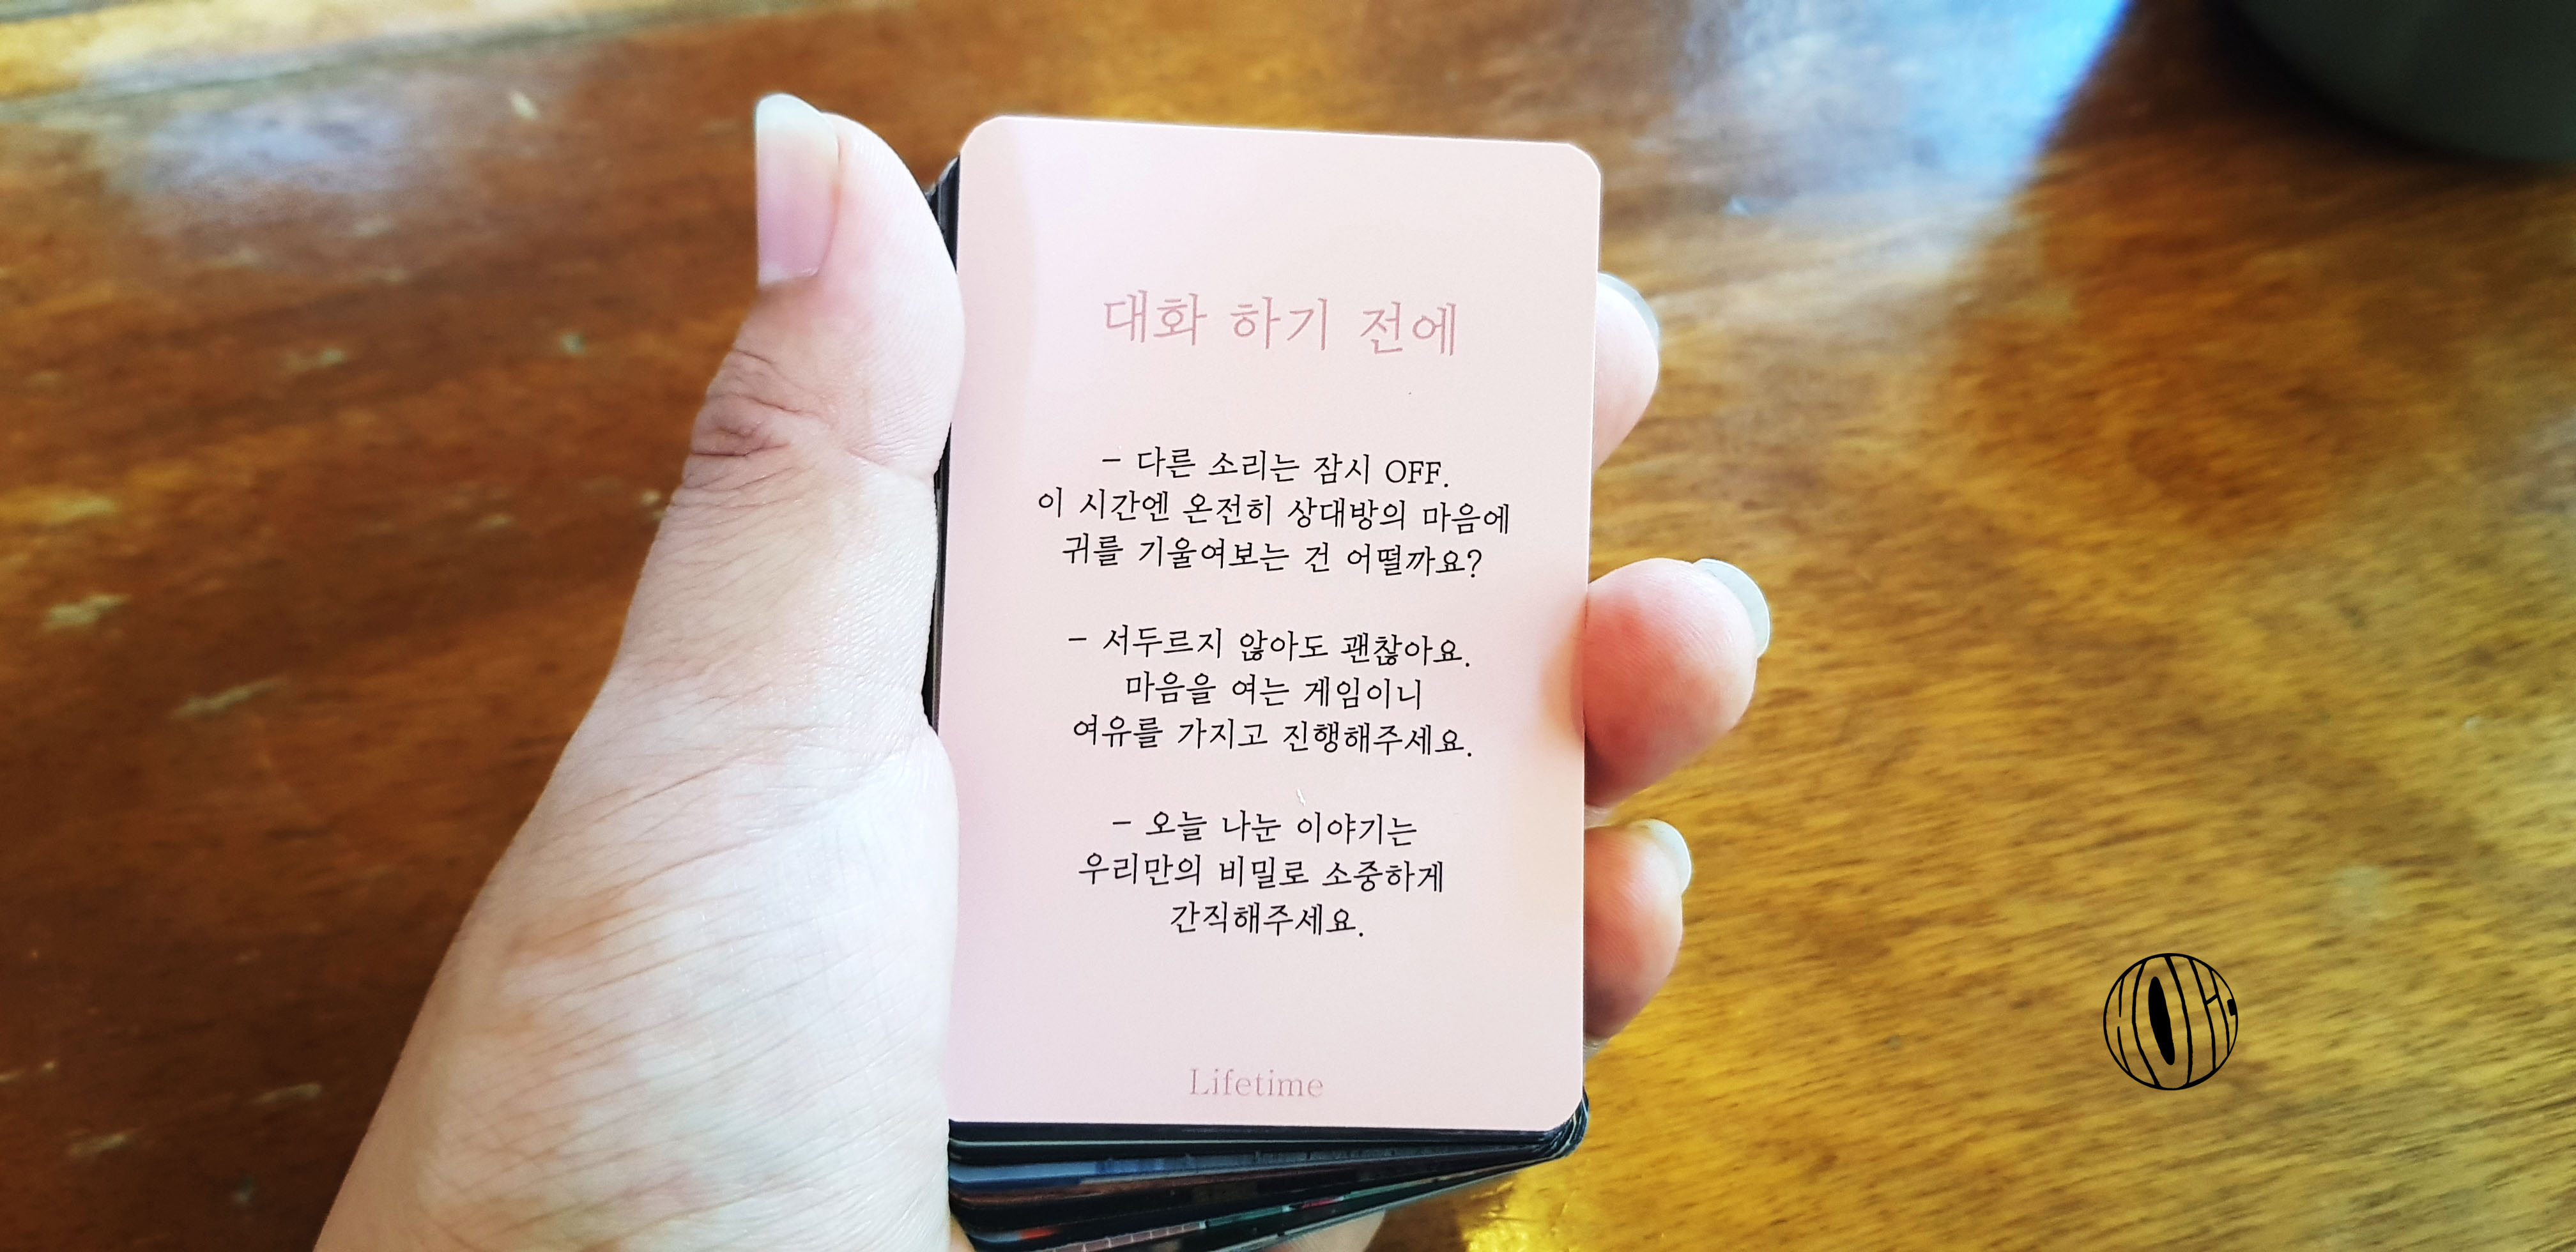 대화 하기 전에
- 다른 소리는 잠시 OFF.
이 시간엔 온전히 상대방의 마음에
귀를 기울여보는 건 어떨까요?
- 서두르지 않아도 괜찮아요.
마음을 여는 게임이니
여유를 가지고 진행해주세요.
- 오늘 나눈 이야기는
우리만의 비밀로 소중하게
간직해주세요.
Lifetime